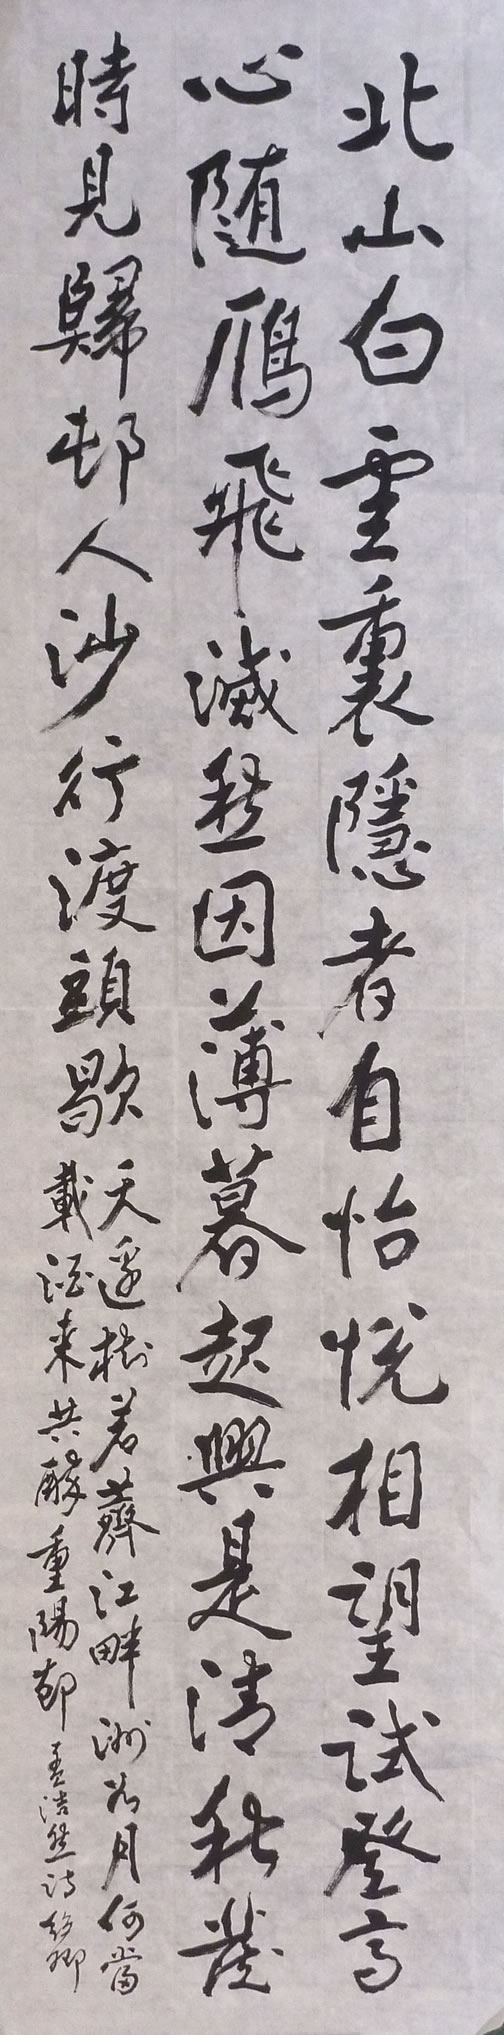 北山白雲裏隱者自怡悅相望試登高
心随鴈飛滅愁因薄暮起興是清秋發
時見歸邨人沙行渡頭歇
天邊樹若薺江畔洲如月何當
載酒來共醉重陽節孟浩然詩